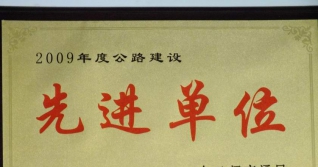 2009年度公路建设
先进单位